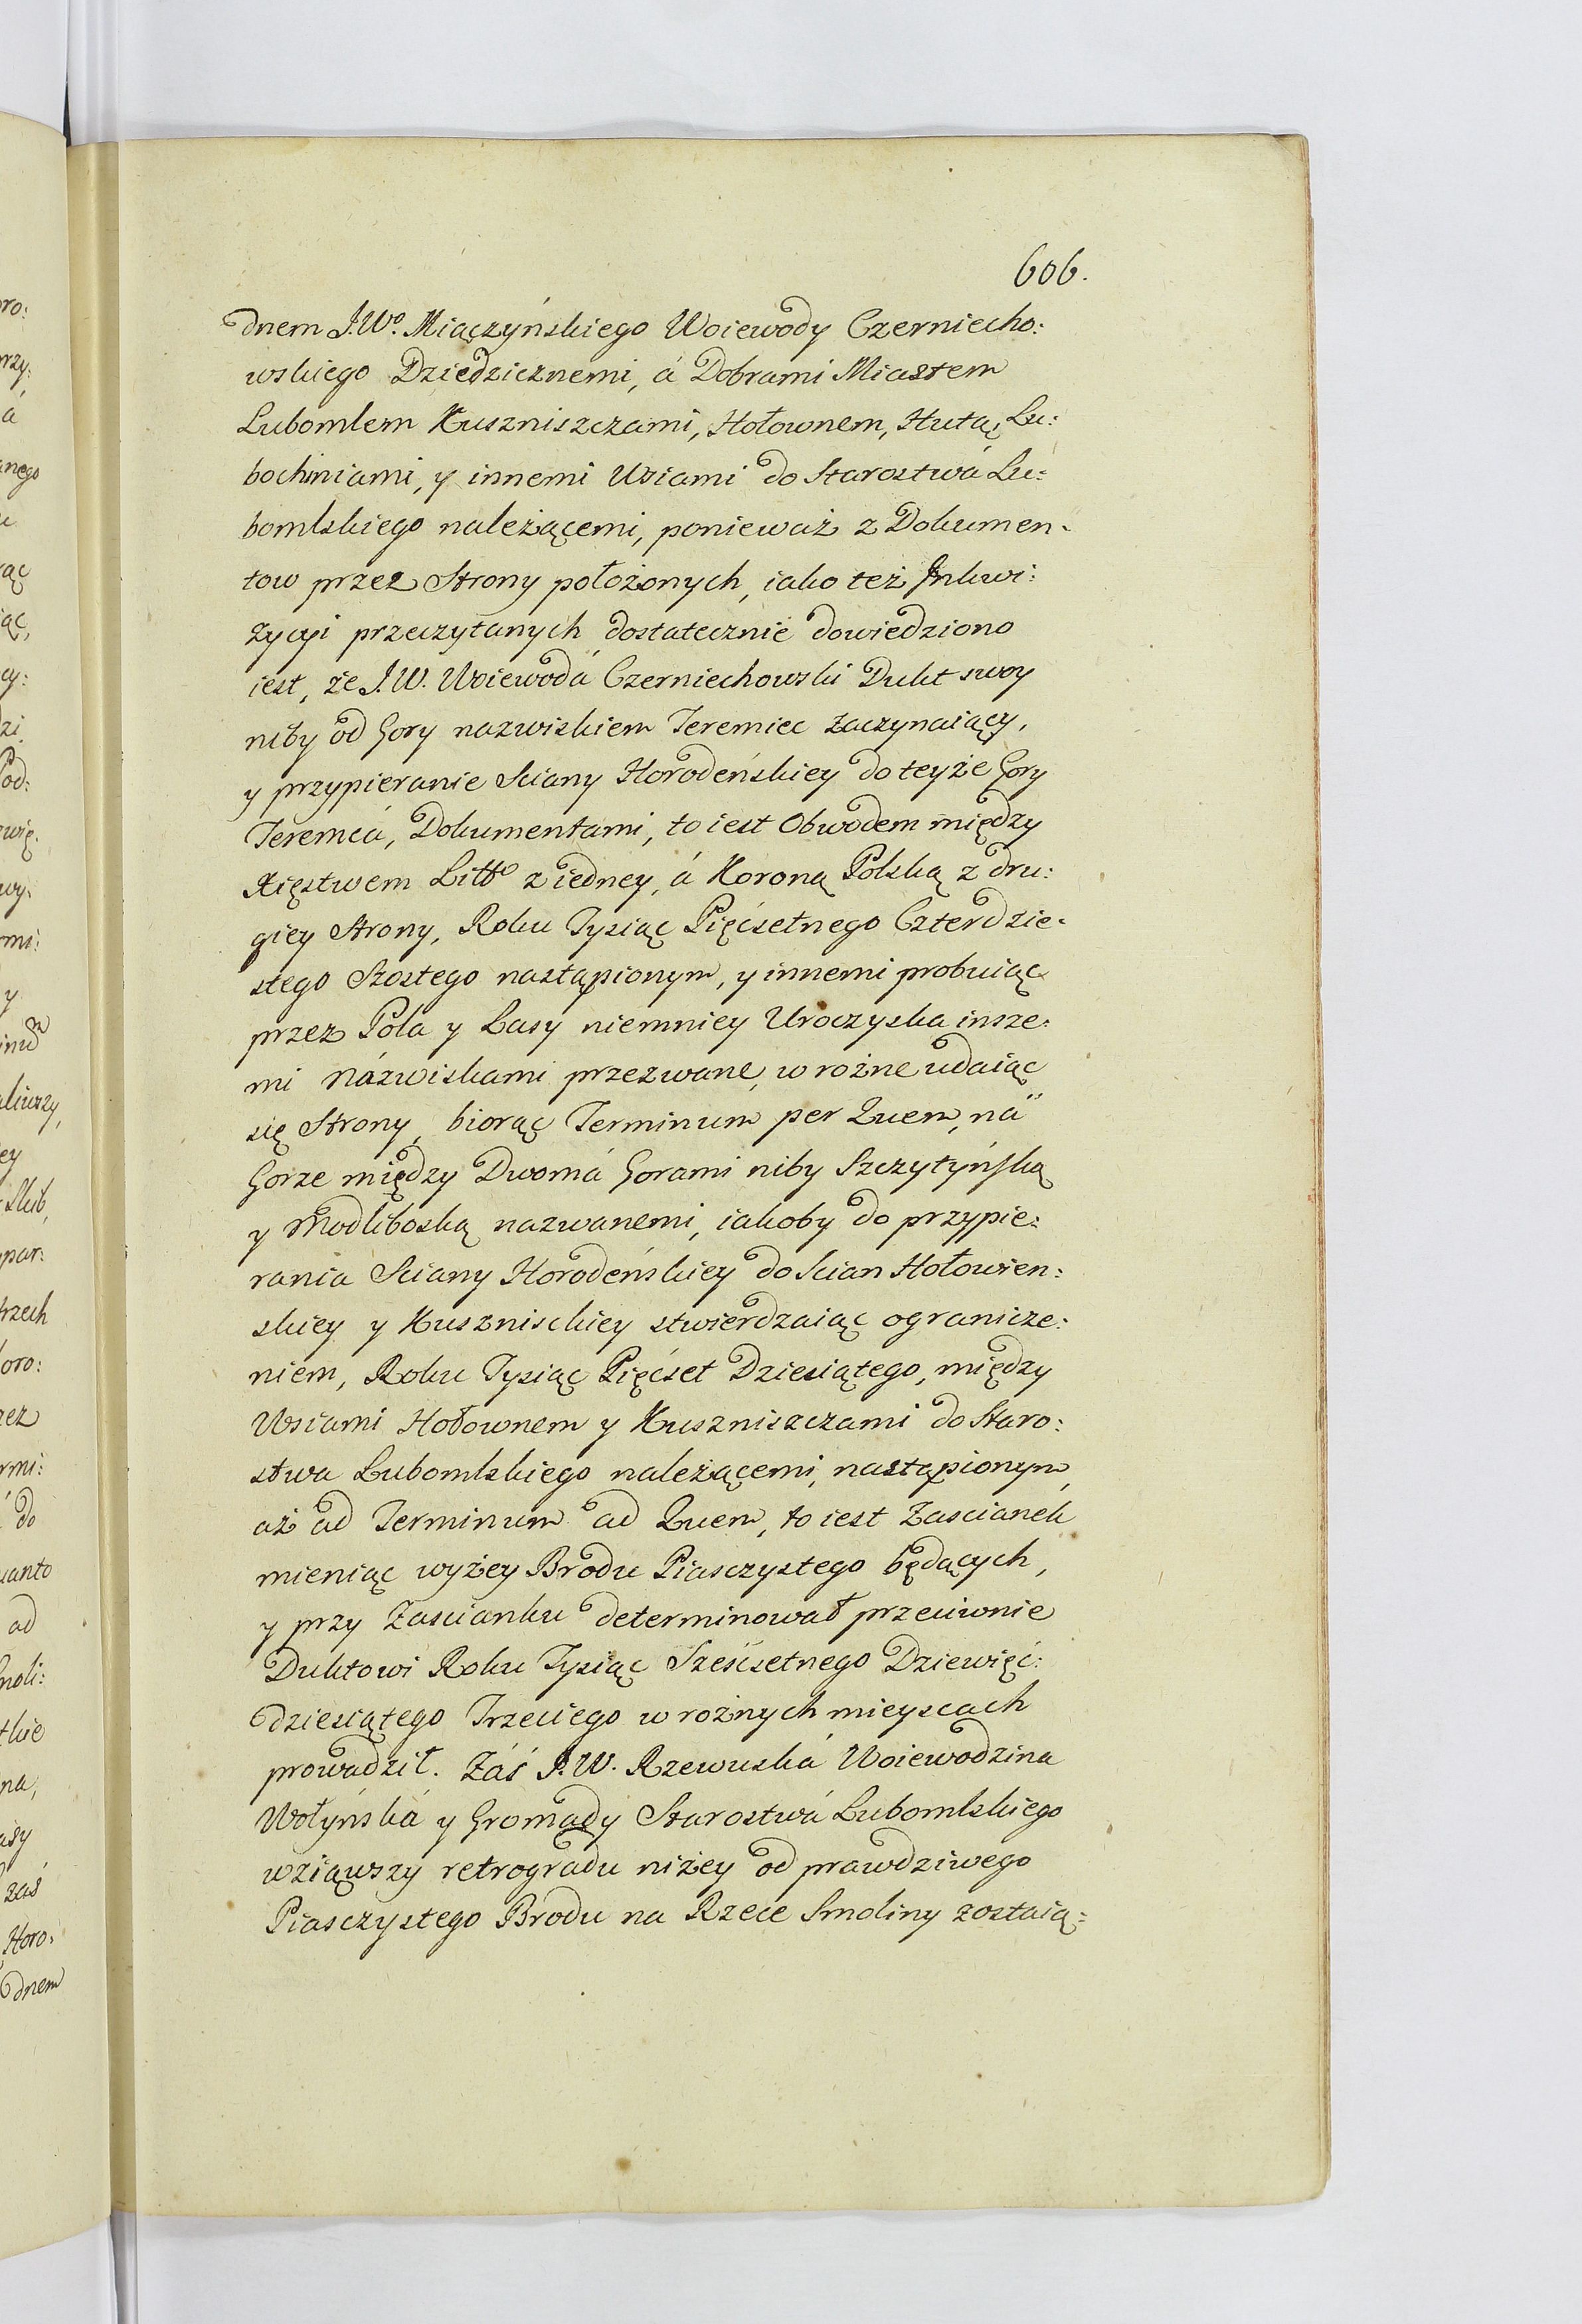 606.
dnem J.W<sup>o</sup>. Miączyńskiego Woiewody Czerniecho:
wskiego Dziedzicznemi, á Dobrami Miastem
Lubomlem Kuszniszczami, Hołownem, Hutą, Lu:
bochiniami, y innemi Wsiami do Starostwá Lu:
bomlskiego należącemi, ponieważ z Dokumen-
tow przez Strony położonych, iako też Inkwi:
zycyi przeczytanych dostatecznie dowiedziono
iest, że J.W. Woiewodá Czerniechowski Dukt swoy
niby od Gory nazwiskiem Jeremiec zaczynaiący,
y przypieranie Sciany Horodeńskiey do teyże Gory
Jeremcá, Dokumentami, to iest Obwodem między
Xięstwem Litt<sup>o</sup> z iedney, á Koroną Polską z dru:
giey Strony, Roku Tysiąc Pięćsetnego Czterdzie-
stego Szostego nastąpionym, y innemi probuiąc
przez Pola y Lasy niemniey Uroczyska insze:
mi názwiskami przezwane, w rożne udaiąc
się Strony, biorąc Terminum per Quem, ná
Gorze między Dwomá Gorami niby Szczytyńską
y Modliboską nazwanemi, iakoby do przypie:
rania Sciany Horodeńskiey do Scian Hołowien:
skiey y Kuszniskiey stwierdzaiąc ogranicze:
niem, Roku Tysiąc Pięćset Dziesiątego, między
Wsiami Hołownem y Kuszniszczami do Staro:
stwa Lubomlskiego należącemi, nastąpionym,
aż ad Terminum ad Quem, to iest Zascianek
mieniąc wyżey Brodu Piasczystego będących,
y przy Zascianku determinował przeciwnie
Duktowi Roku Tysiąc Sześćsetnego Dziewięć:
dziesiątego Trzeciego w rożnych mieyscach
prowadził. Záś J.W. Rzewuská Woiewodzina
Wołyńská y Gromady Starostwá Lubomlskiego
wziąwszy retrogradu niżey od prawdziwego
Piasczystego Brodu na Rzece Smoliny zostaią: